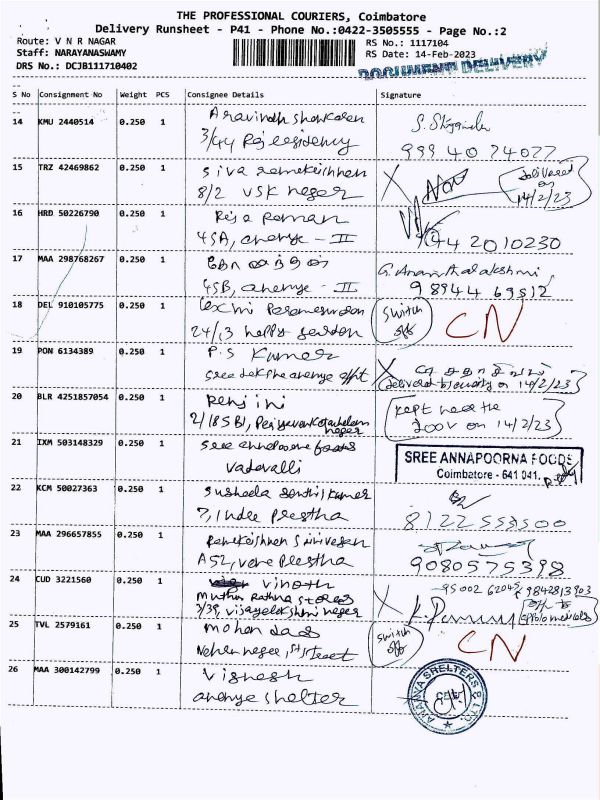 THE PROFESSIONAL COURIERS, Coimbatore
Delivery Runsheet - P41 - Phone No.:0422-3505555 - Page No.:2
Route: V N R NAGAR
Staff: NARAYANASWAMY
DRS No.: DCJB111710402
RS No.: 1117104
RS Date: 14-Feb-2023
DOCUMENT DELIVERY
S No Consignment No Weight PCS Consignee Details Signature
14 KMU 2440514 0.250 1
3/44 Raj residency
99940 74077
15 TRZ 42469862 0.250 1 siva ramakrishnan
8/2 VSK nagar
delivered on 14/2/23
16 HRD 50226790 0.250 1 Raja Raman
45A, ananya - II
944 2010230
17 MAA 298768267 0.250 1
45B, ananya - II
98944 69512
18 DEL 910105775 0.250 1
24/13 happy garden
switch off CN
19 PON 6134389 0.250 1 P.S Kumar
delivered to security on 14/2/23
20 BLR 4251857054 0.250 1 Renjini
nagar
kept near the
door on 14/2/23
21 IXM 503148329 0.250 1 sree annapoorna foods
vadavalli
SREE ANNAPOORNA FOODS
Coimbatore - 641 041.
22 KCM 50027363 0.250 1 susheela senthilkumar
7, Indee prestha
8122553500
23 MAA 296657855 0.250 1 Ramakrishnan srinivasan
A52, vare prestha
9080575398
24 CUD 3221560 0.250 1 vinoth
muthu Rathna stores
3/39, vijayalakshmi nagar
95002 62045, 9842813903
25 TVL 2579161 0.250 1 mohan das
Nehru nagar, 1st street
switch off CN
26 MAA 300142799 0.250 1 Vignesh
ananya shelter
ANANYA SHELTERS P LTD.